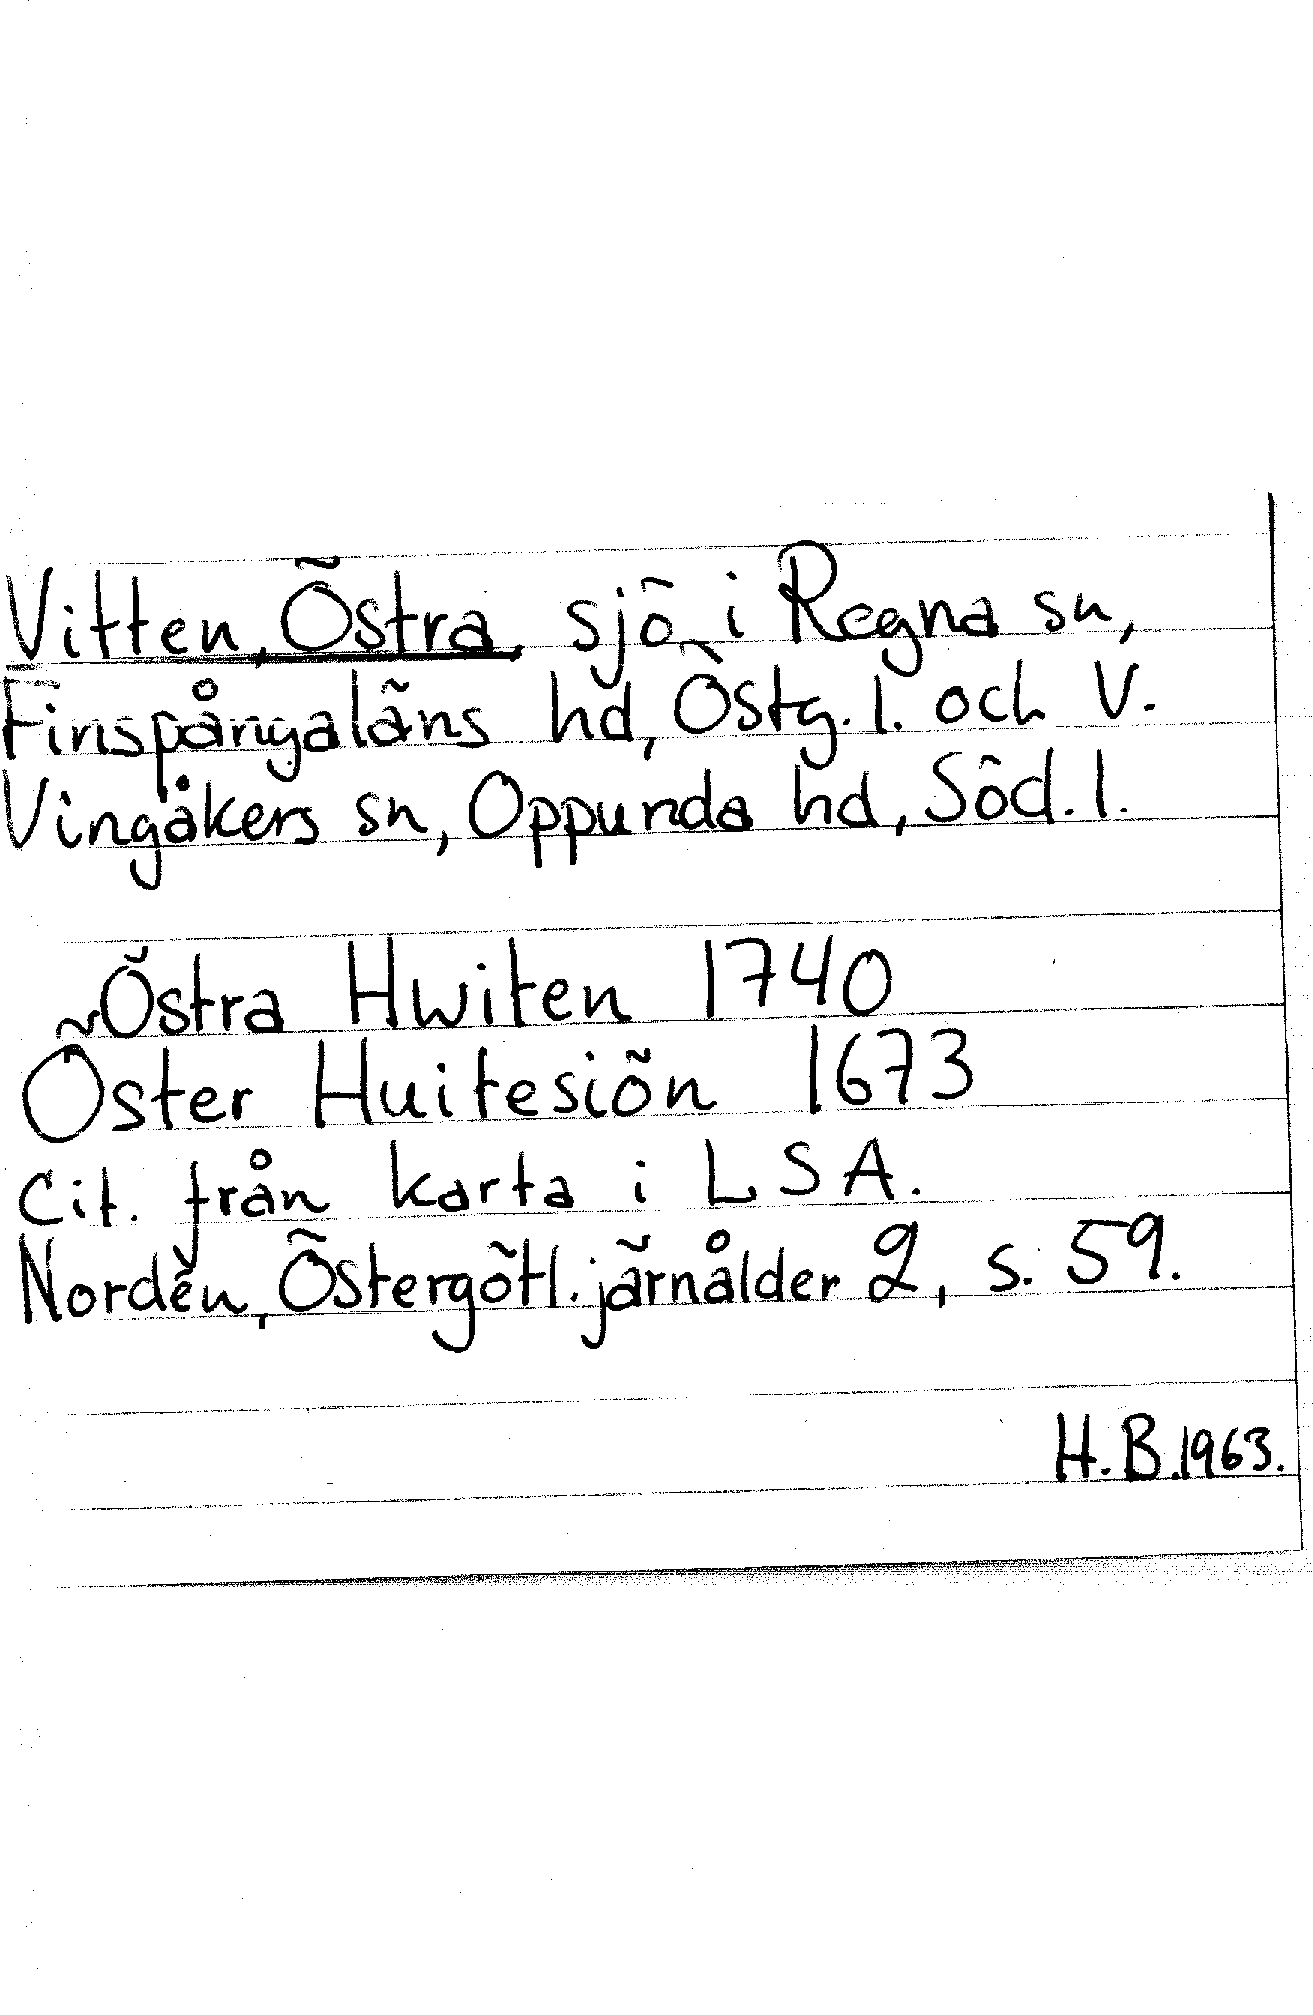 Vitten, Östra, sjö i Regna sn,
Finspångaläns hd, Östg. l. och V.
Vingåkers sn, Oppunda hd, Söd. l.
Östra Hwiten 1740
Öster Huitesiön 1673
Cit. från karta i LSA.
Nordén, Östergötl. järnålder 2, s. 59.
H.B.1963.